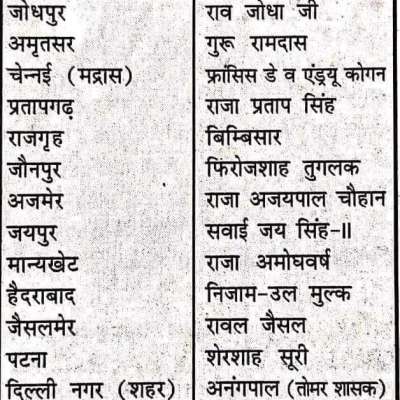 जोधपुर राव जोधा जी
अमृतसर गुरू रामदास
चेन्नई (मद्रास) फ्रांसिस डे व एंड्रयू कोगन
प्रतापगढ़ राजा प्रताप सिंह
राजगृह बिम्बिसार
जौनपुर फिरोजशाह तुगलक
अजमेर राजा अजयपाल चौहान
जयपुर सवाई जय सिंह-II
मान्यखेट राजा अमोघवर्ष
हैदराबाद निजाम-उल मुल्क
जैसलमेर रावल जैसल
पटना शेरशाह सूरी
दिल्ली नगर (शहर) अनंगपाल (तोमर शासक)